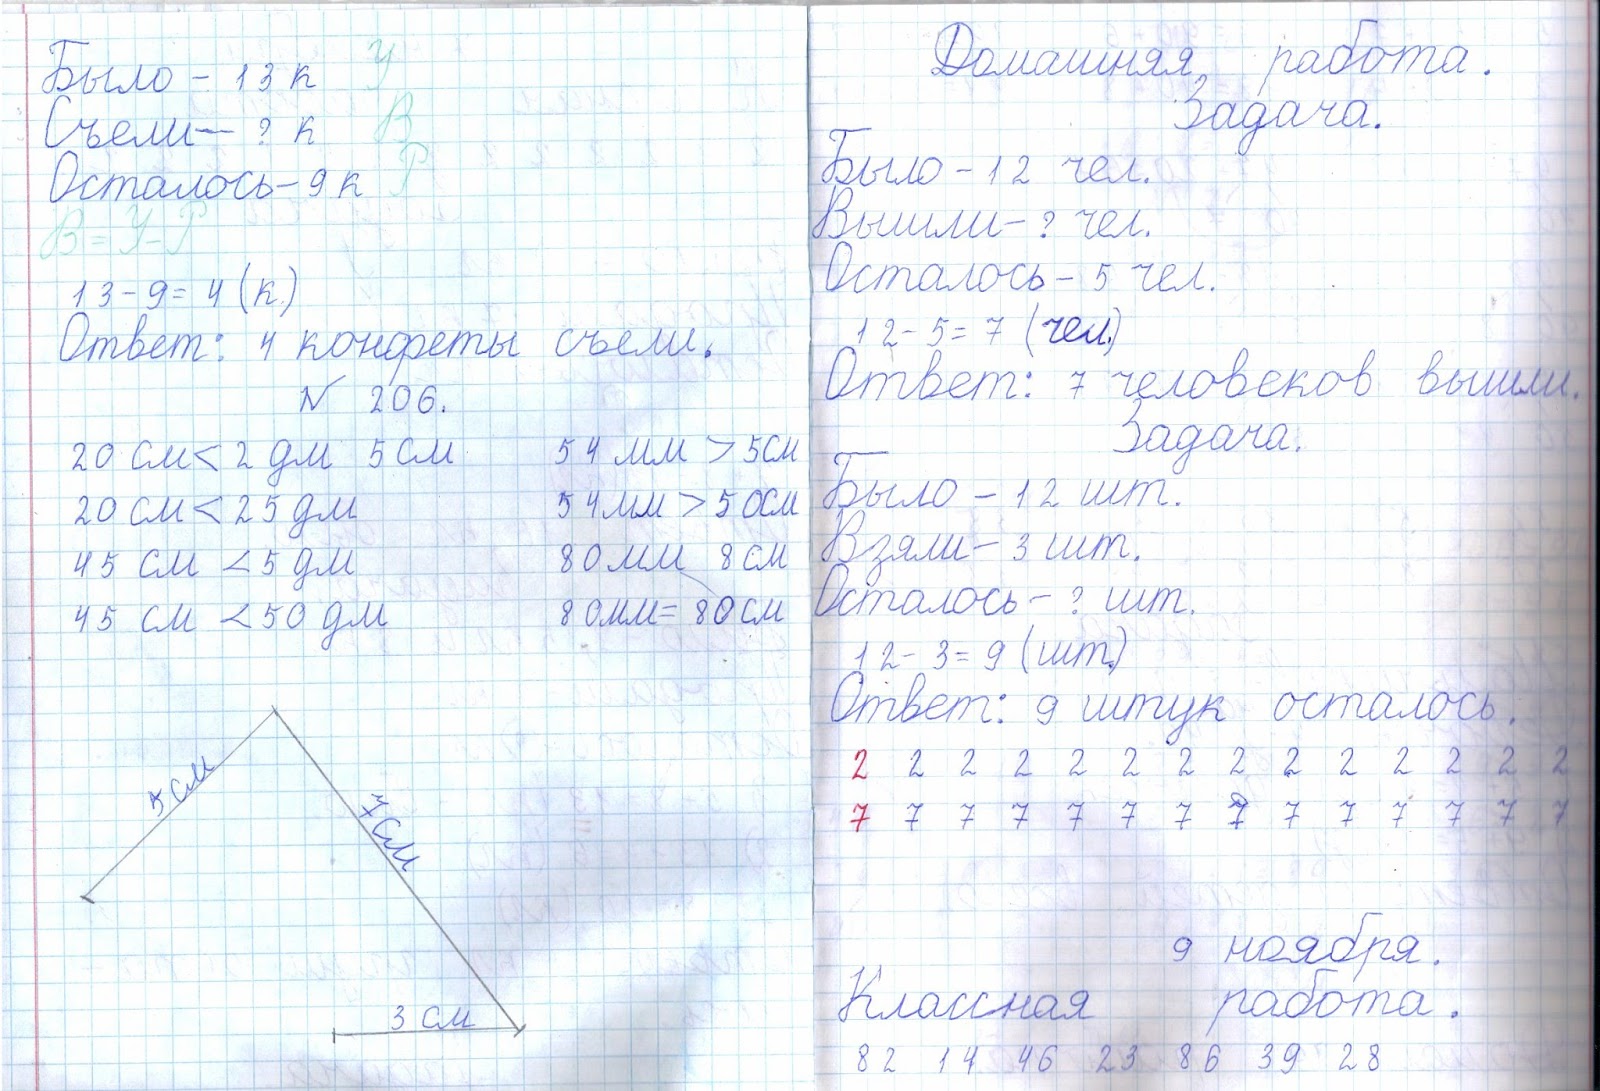 Было - 13 к У
Съели - ? к В
Осталось - 9 к Р
В = У - Р
13 - 9 = 4 (к.)
Ответ: 4 конфеты съели.
№ 206.
20 см < 2 дм 5 см 54 мм > 5 см
20 см < 25 дм 54 мм > 50 см
45 см < 5 дм 80 мм 8 см
45 см < 50 дм 80 мм = 80 см
5 см
7 см
3 см
Домашняя работа.
Задача.
Было - 12 чел.
Вышли - ? чел.
Осталось - 5 чел.
12 - 5 = 7 (чел.)
Ответ: 7 человеков вышли.
Задача.
Было - 12 шт.
Взяли - 3 шт.
Осталось - ? шт.
12 - 3 = 9 (шт.)
Ответ: 9 штук осталось.
2 2 2 2 2 2 2 2 2 2 2 2 2 2
7 7 7 7 7 7 7 7 7 7 7 7 7 7
9 ноября.
Классная работа.
82 14 46 23 86 39 28